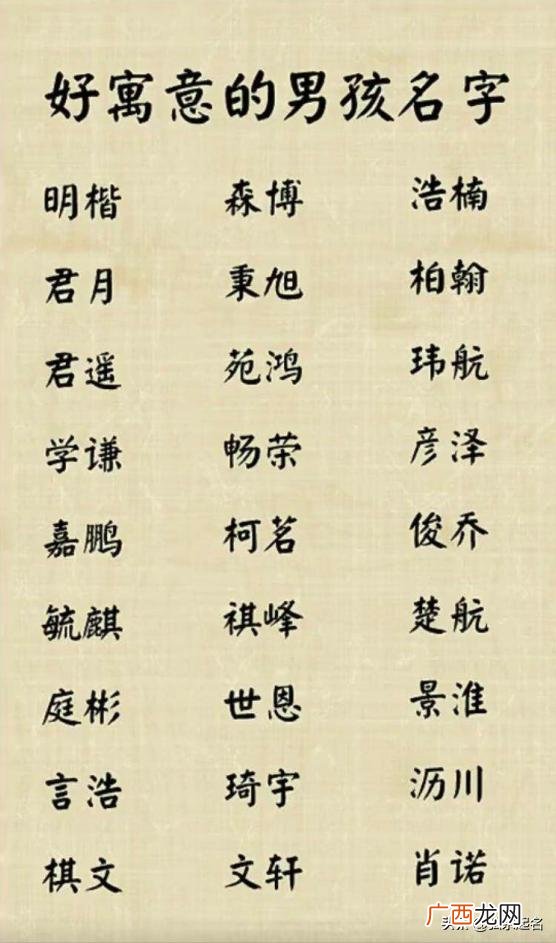 好寓意的男孩名字
明楷 森博 浩楠
君月 秉旭 柏翰
君遥 苑鸿 玮航
学谦 畅荣 彦泽
嘉鹏 柯茗 俊乔
毓麒 祺峰 楚航
庭彬 世恩 景淮
言浩 琦宇 沥川
棋文 文轩 肖诺
广西龙网